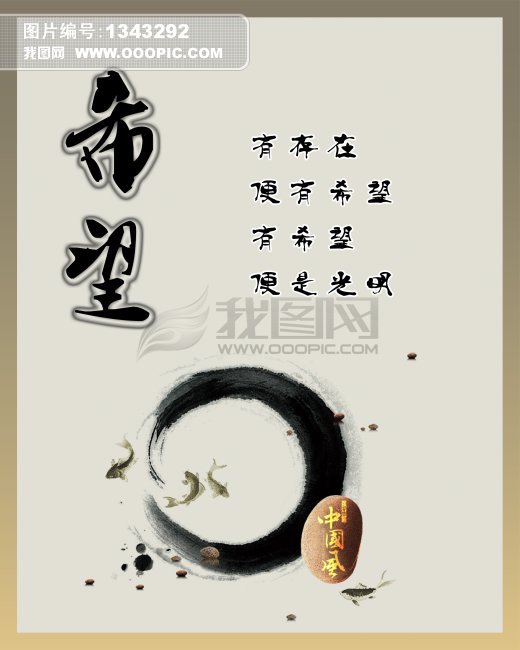 图片编号:1343292
我图网 WWW.OOOPIC.COM
希望
有存在
便有希望
有希望
便是光明
我图网
WWW.OOOPIC.COM
中國风